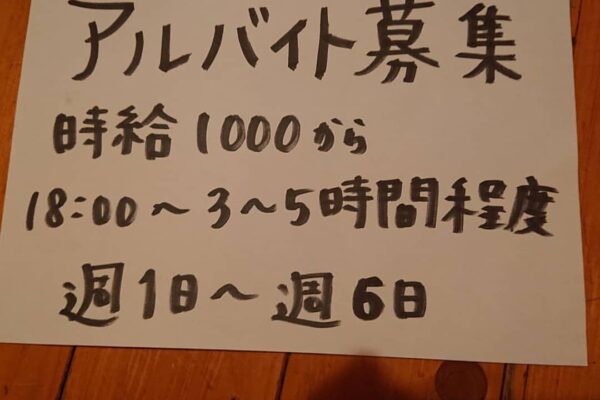 アルバイト募集
時給1000から
18:00〜3〜5時間程度
週1日〜週6日